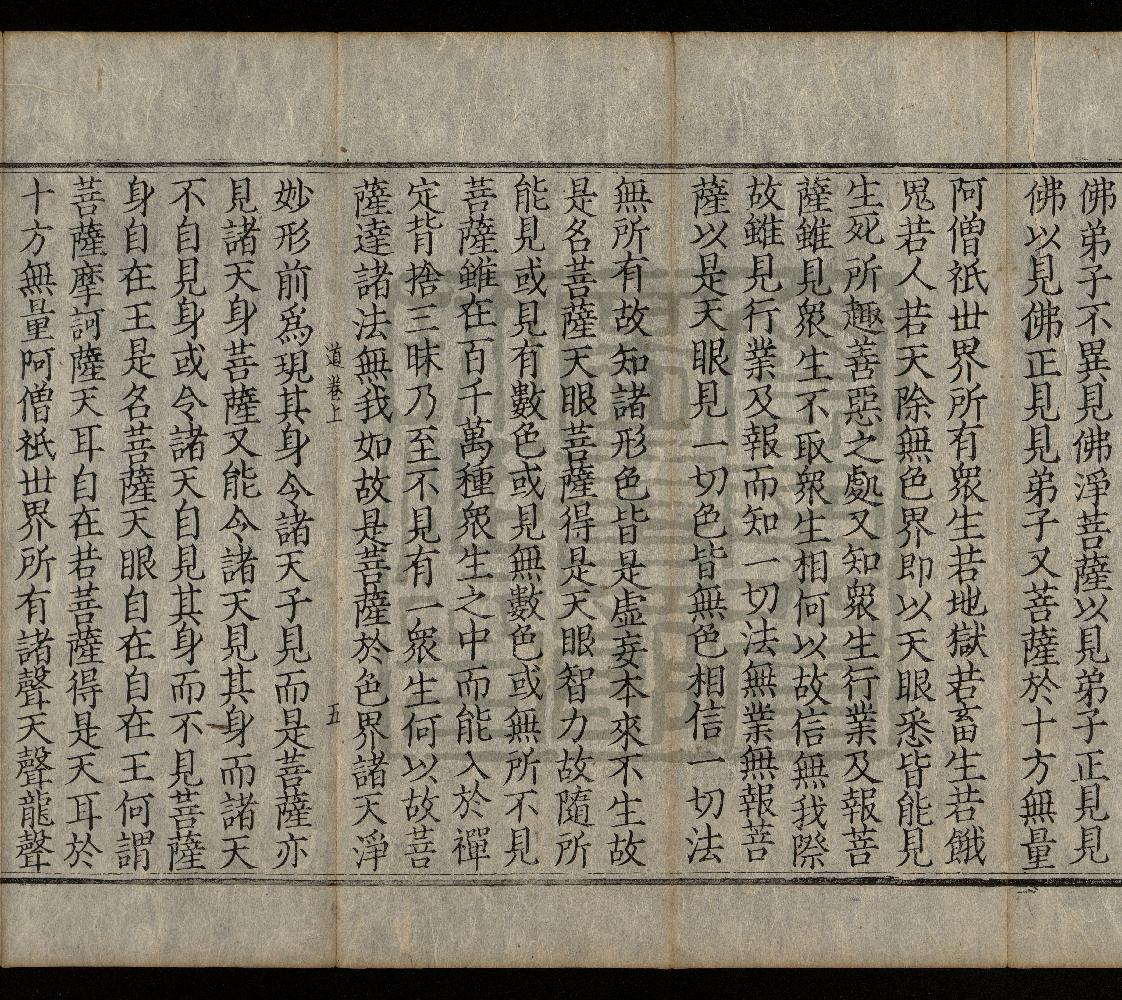 佛弟子不異見佛淨菩薩以見弟子正見見
佛以見佛正見見弟子又菩薩於十方無量
阿僧祇世界所有衆生若地獄若畜生若餓
鬼若人若天除無色界即以天眼悉皆能見
生死所趣善惡之處又知衆生行業及報菩
薩雖見衆生不取衆生相何以故信無我際
故雖見行業及報而知一切法無業無報菩
薩以是天眼見一切色皆無色相信一切法
無所有故知諸形色皆是虛妄本來不生故
是名菩薩天眼菩薩得是天眼智力故隨所
能見或見有數色或見無數色或無所不見
菩薩雖在百千萬種衆生之中而能入於禪
定背捨三昧乃至不見有一衆生何以故菩
薩達諸法無我如故是菩薩於色界諸天淨
道卷上 五
妙形前爲現其身令諸天子見而是菩薩亦
見諸天身菩薩又能令諸天見其身而諸天
不自見身或令諸天自見其身而不見菩薩
身自在王是名菩薩天眼自在自在王何謂
菩薩摩訶薩天耳自在若菩薩得是天耳於
十方無量阿僧祇世界所有諸聲天聲龍聲